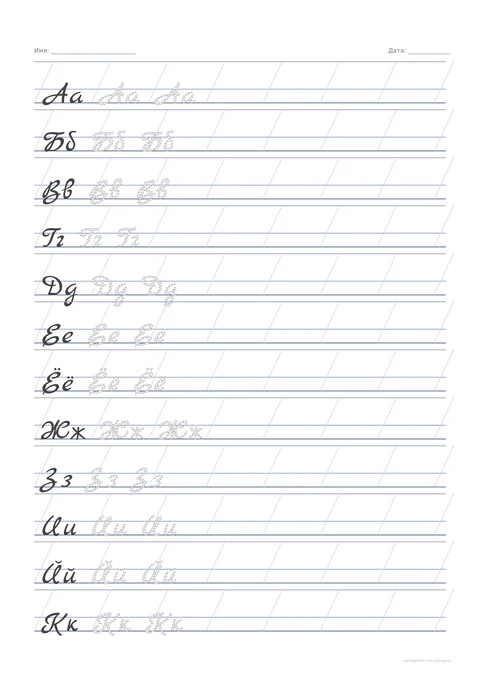 Имя: ____________________ Дата: __________
Аа Аа Аа
Бб Бб Бб
Вв Вв Вв
Гг Гг Гг
Дд Дд Дд
Ее Ее Ее
Ёё Ёё Ёё
Жж Жж Жж
Зз Зз Зз
Ии Ии Ии
Йй Йй Йй
Кк Кк Кк